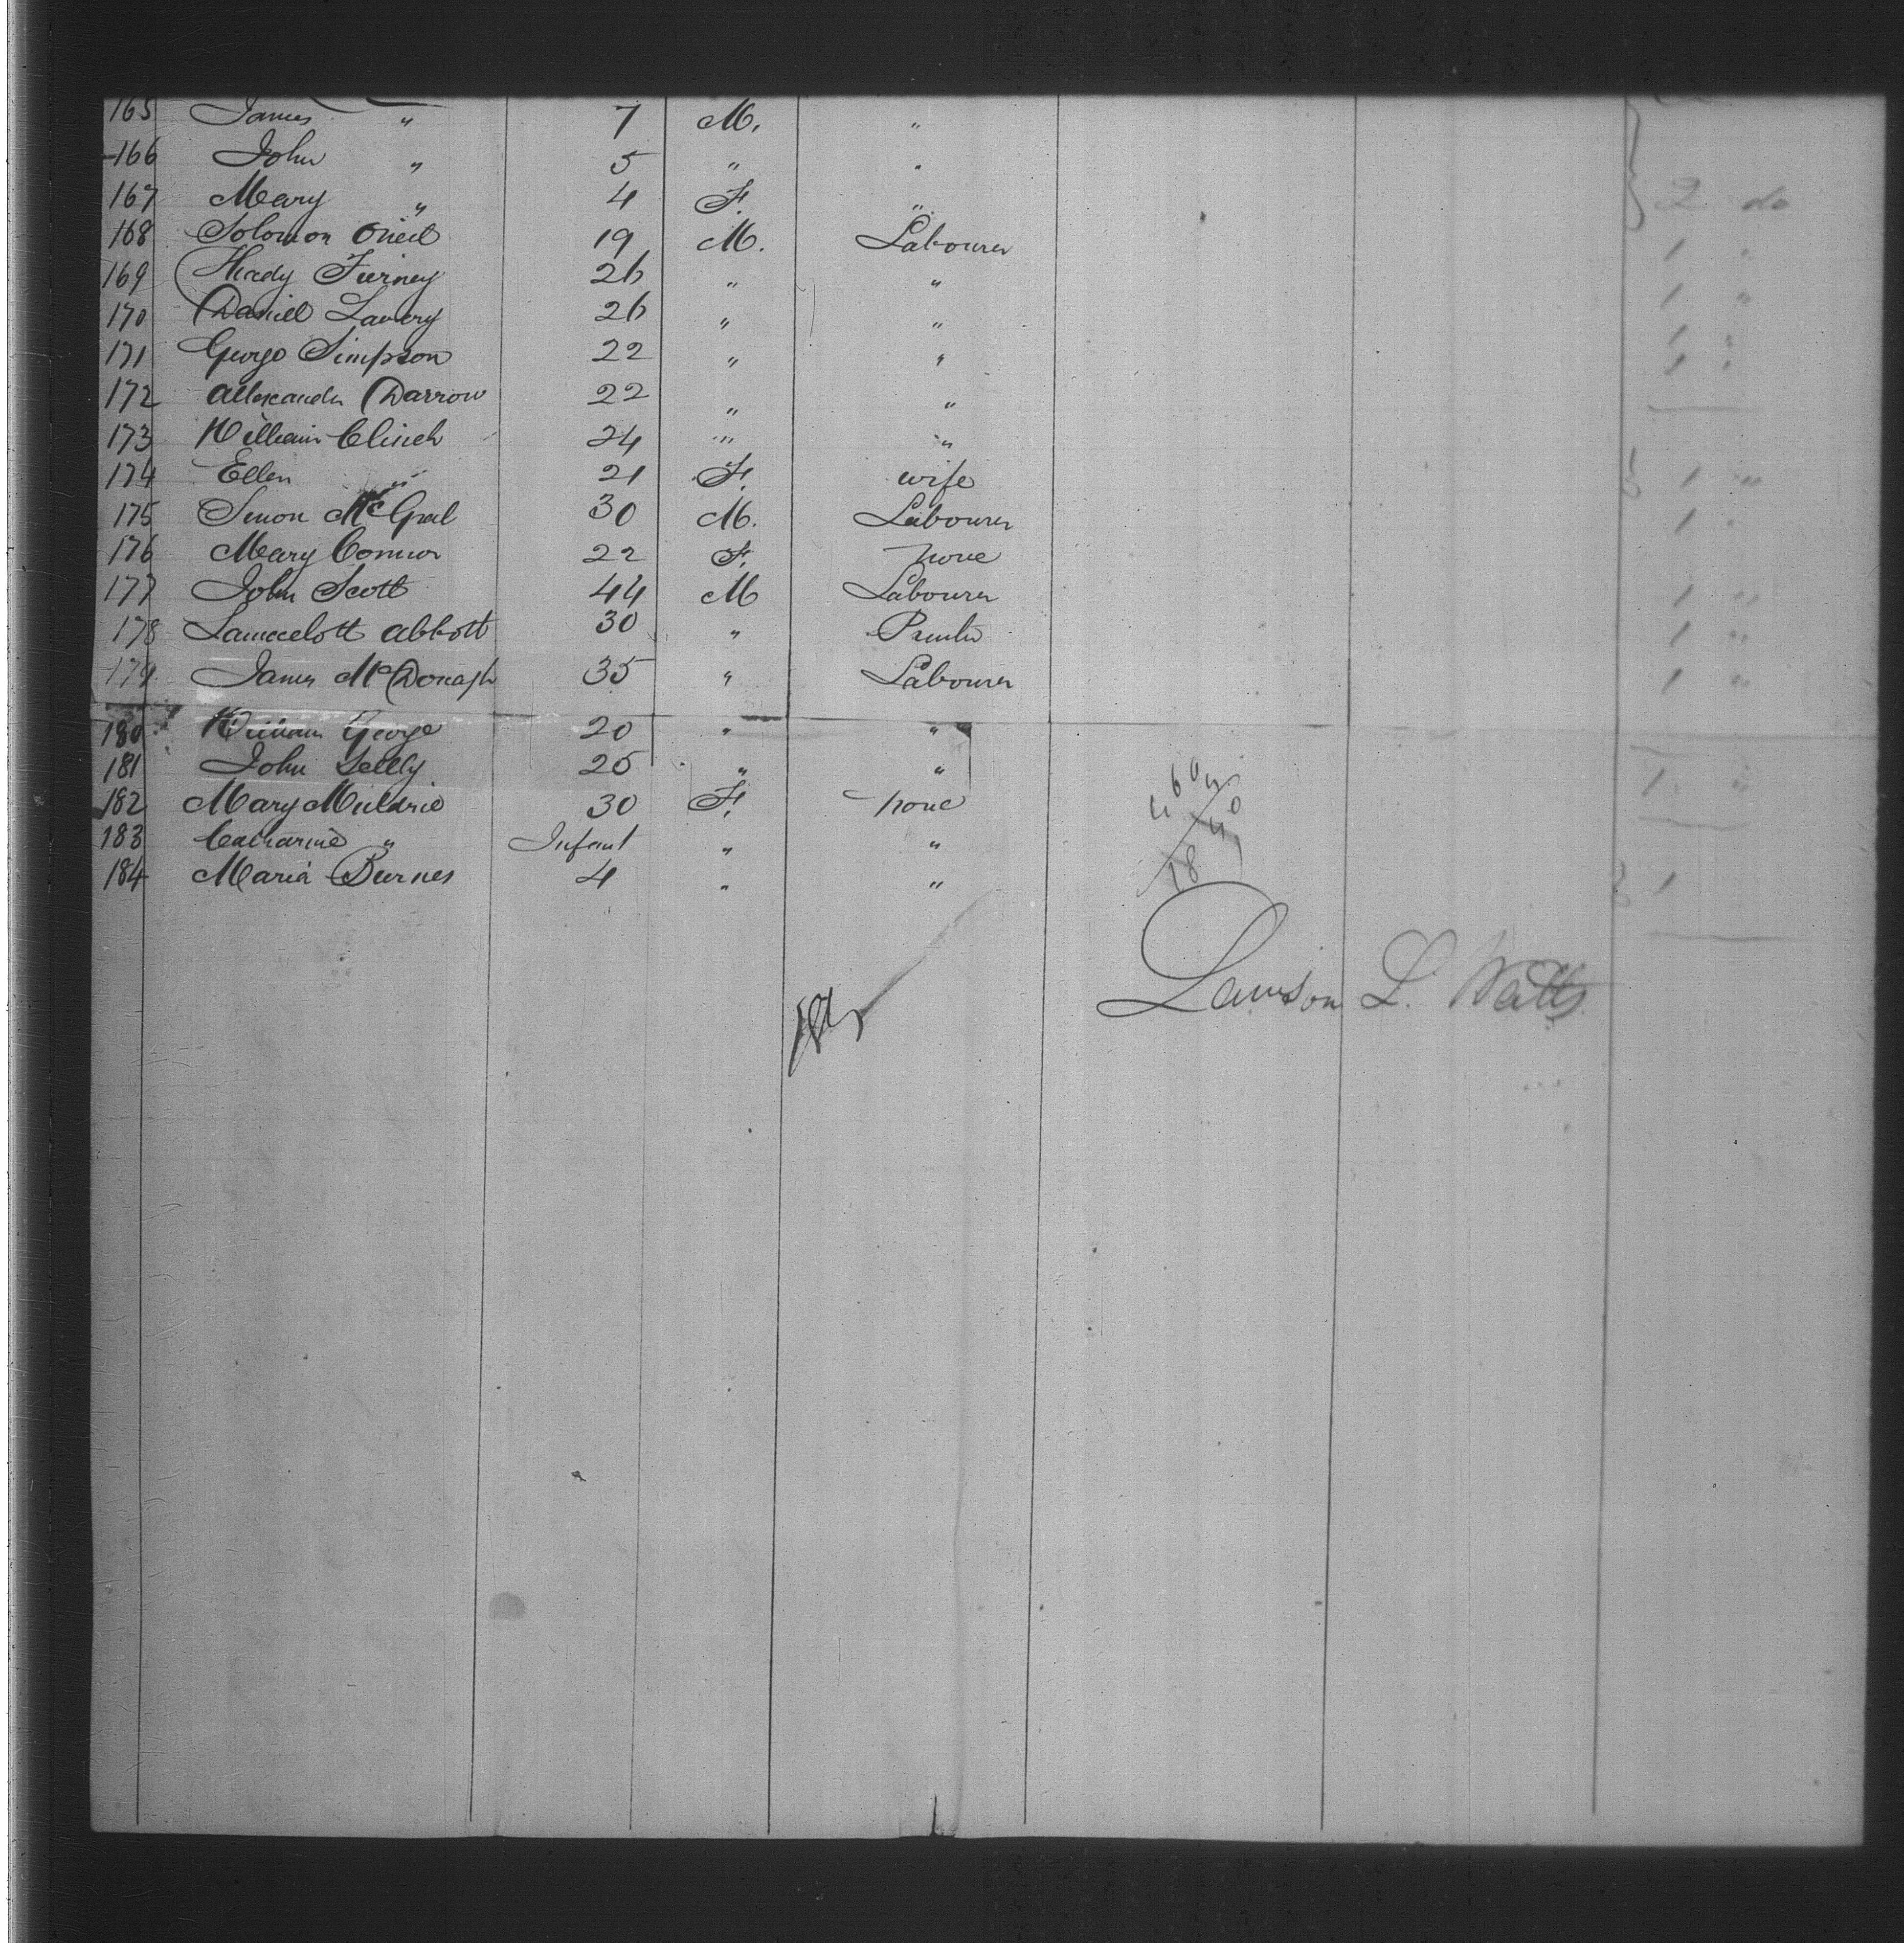 165 James " 7 M. "
166 John " 5 " " 
167 Mary " 4 F. " 2 do
168 Solomon Oneil 19 M. Labourer 1 "
169 Thady Tierney 26 " " 1 "
170 Daniel Lavery 26 " " 1 "
171 George Simpson 22 " " 1 "
172 Allexander Darrow 22 " "
173 William Clinch 24 " "
174 Ellen " 21 F. wife 1 "
175 Simon McGral 30 M. Labourer 1 "
176 Mary Connor 22 F. none
177 John Scott 44 M Labourer 1 "
178 Launcelott Abbott 30 " 1 "
179 James McDonagh 35 " Labourer 1 "
180 William George 20 " "
181 John Lelly 25 " " 1 "
182 Mary Muldrie 30 F. none
183 Catharine " Infant " "
184 Maria Burnes 4 " " 1
Lawson L. Watts